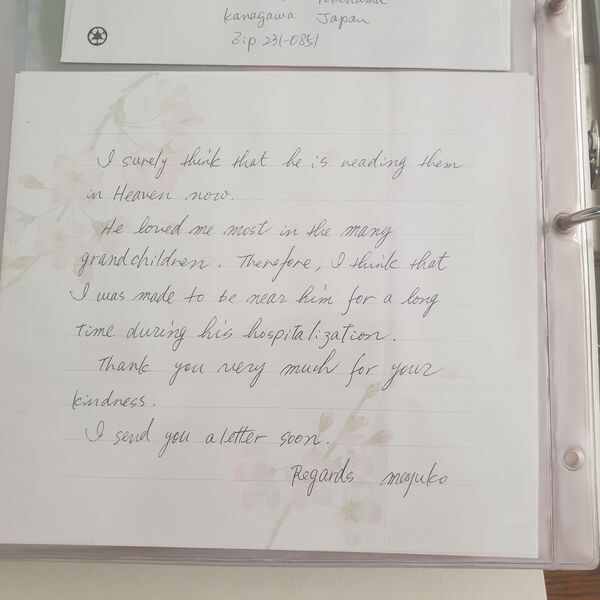 Kanagawa Japan
Zip 231-0851
I surely think that he is reading them
in Heaven now.
He loved me most in the many
grandchildren. Therefore, I think that
I was made to be near him for a long
time during his hospitalization.
Thank you very much for your
kindness.
I send you a letter soon.
Regards mayuko